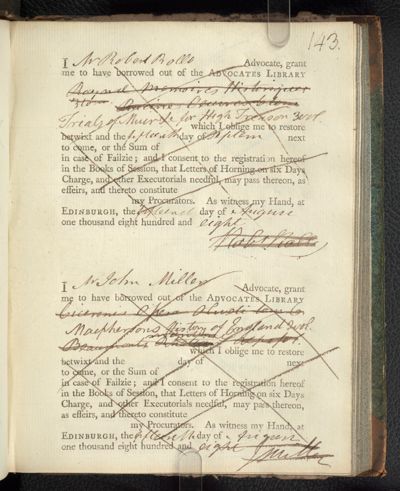 143.
I Mr Robert Rollo Advocate, grant
me to have borrowed out of the ADVOCATES LIBRARY
Memoires Historiques
Trials of Muir &c for High Treason 3 vol.
which I oblige me to restore
betwixt and the fifteenth day of Septem next
to come, or the Sum of
in case of Failzie; and I consent to the registration hereof
in the Books of Session, that Letters of Horning on six Days
Charge, and other Executorials needful, may pass thereon, as
effeirs, and thereto constitute
my Procurators. As witness my Hand, at
EDINBURGH, the fifteenth day of August
one thousand eight hundred and eight
I Mr John Miller Advocate, grant
me to have borrowed out of the ADVOCATES LIBRARY
Ciceronis Opera
Macphersons History of England 2 vol.
which I oblige me to restore
betwixt and the day of next
to come, or the Sum of
in case of Failzie; and I consent to the registration hereof
in the Books of Session, that Letters of Horning on six Days
Charge, and other Executorials needful, may pass thereon,
as effeirs, and thereto constitute
my Procurators. As witness my Hand, at
EDINBURGH, the fifteenth day of August
one thousand eight hundred and eight
J Miller